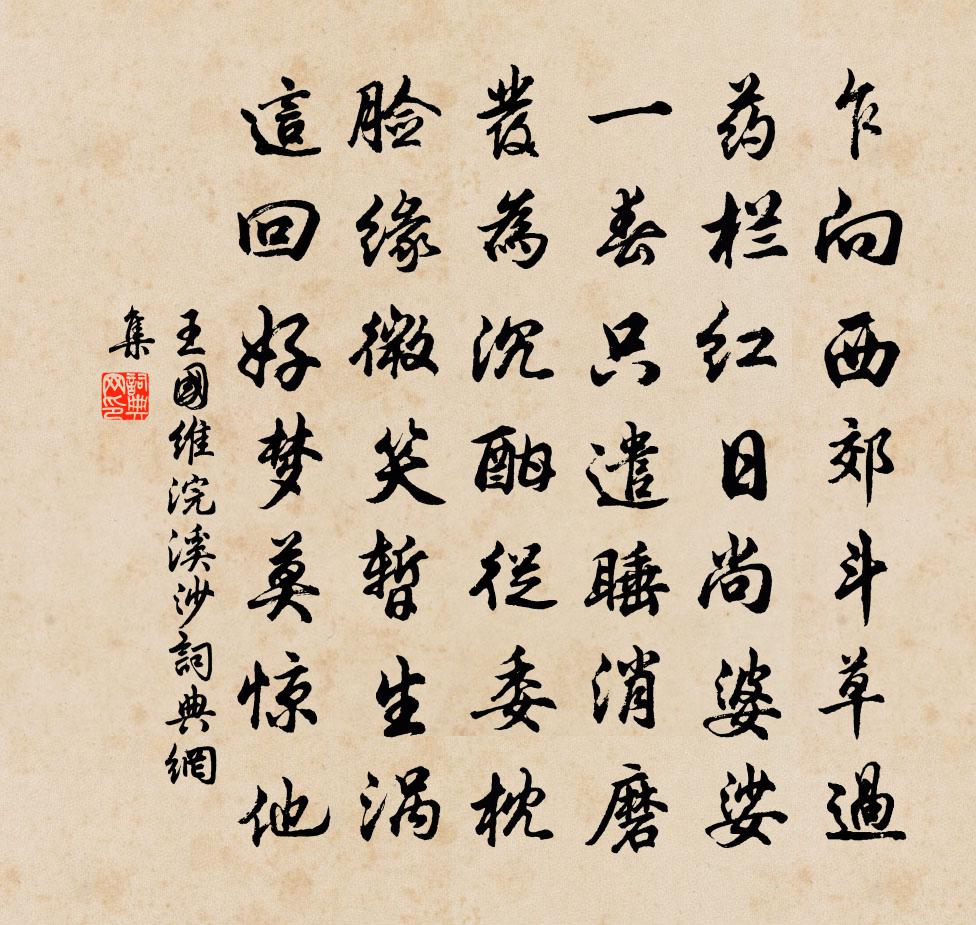 乍向西郊斗草過
药栏红日尚婆娑
一春只遣睡消磨
發為沉酣從委枕
脸缘微笑暫生涡
這回好梦莫惊他
王國維浣溪沙詞典網
集
詞典
网印